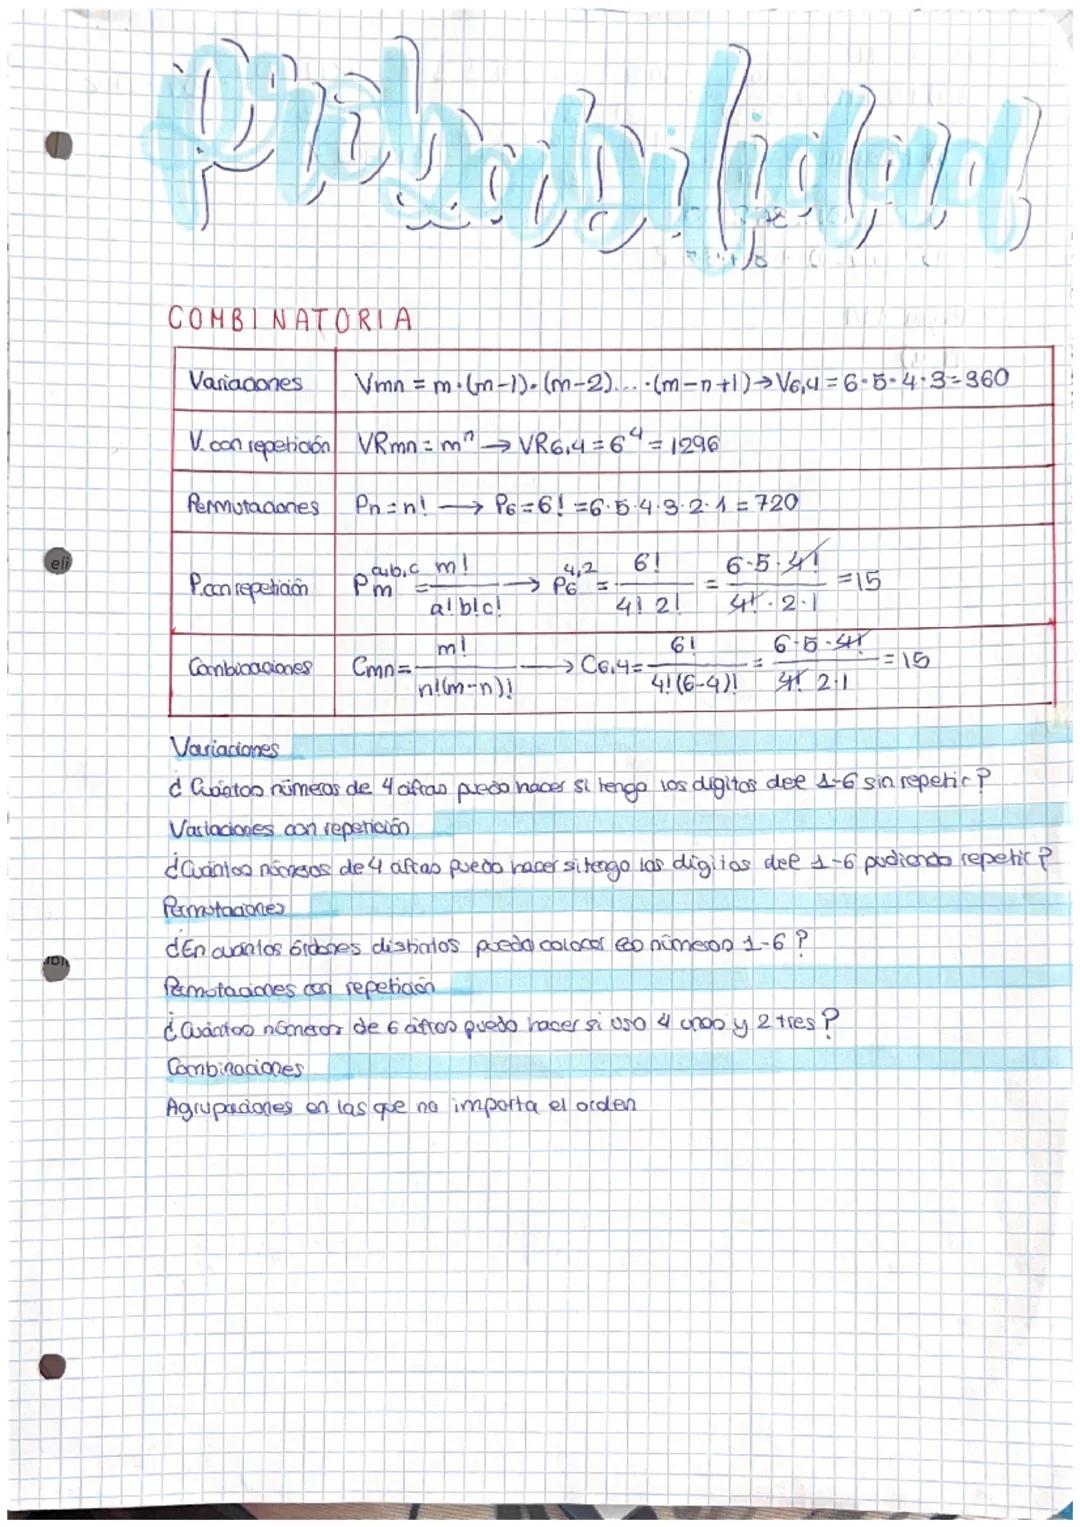 Probabilidad
COMBINATORIA
Variaciones Vmn = m·(m-1)·(m-2)...·(m-n+1) → V6,4 = 6·5·4·3 = 360
V. con repetición VRmn = mⁿ → VR6,4 = 6⁴ = 1296
Permutaciones Pn = n! → P6 = 6! = 6·5·4·3·2·1 = 720
P. con repetición Pm^a,b,c = m!/a!b!c! → P6^4,2 = 6!/4! 2! = 6·5·4!/4!·2·1 = 15
Combinaciones Cmn = m!/n!(m-n)! → C6,4 = 6!/4!(6-4)! = 6·5·4!/4! 2·1 = 15
Variaciones
¿Cuántos números de 4 cifras puedo hacer si tengo los dígitos del 1-6 sin repetir?
Variaciones con repetición
¿Cuántos números de 4 cifras puedo hacer si tengo los dígitos del 1-6 pudiendo repetir?
Permutaciones
¿En cuántos órdenes distintos puedo colocar los números 1-6?
Permutaciones con repetición
¿Cuántos números de 6 cifras puedo hacer si uso 4 unos y 2 tres?
Combinaciones
Agrupaciones en las que no importa el orden